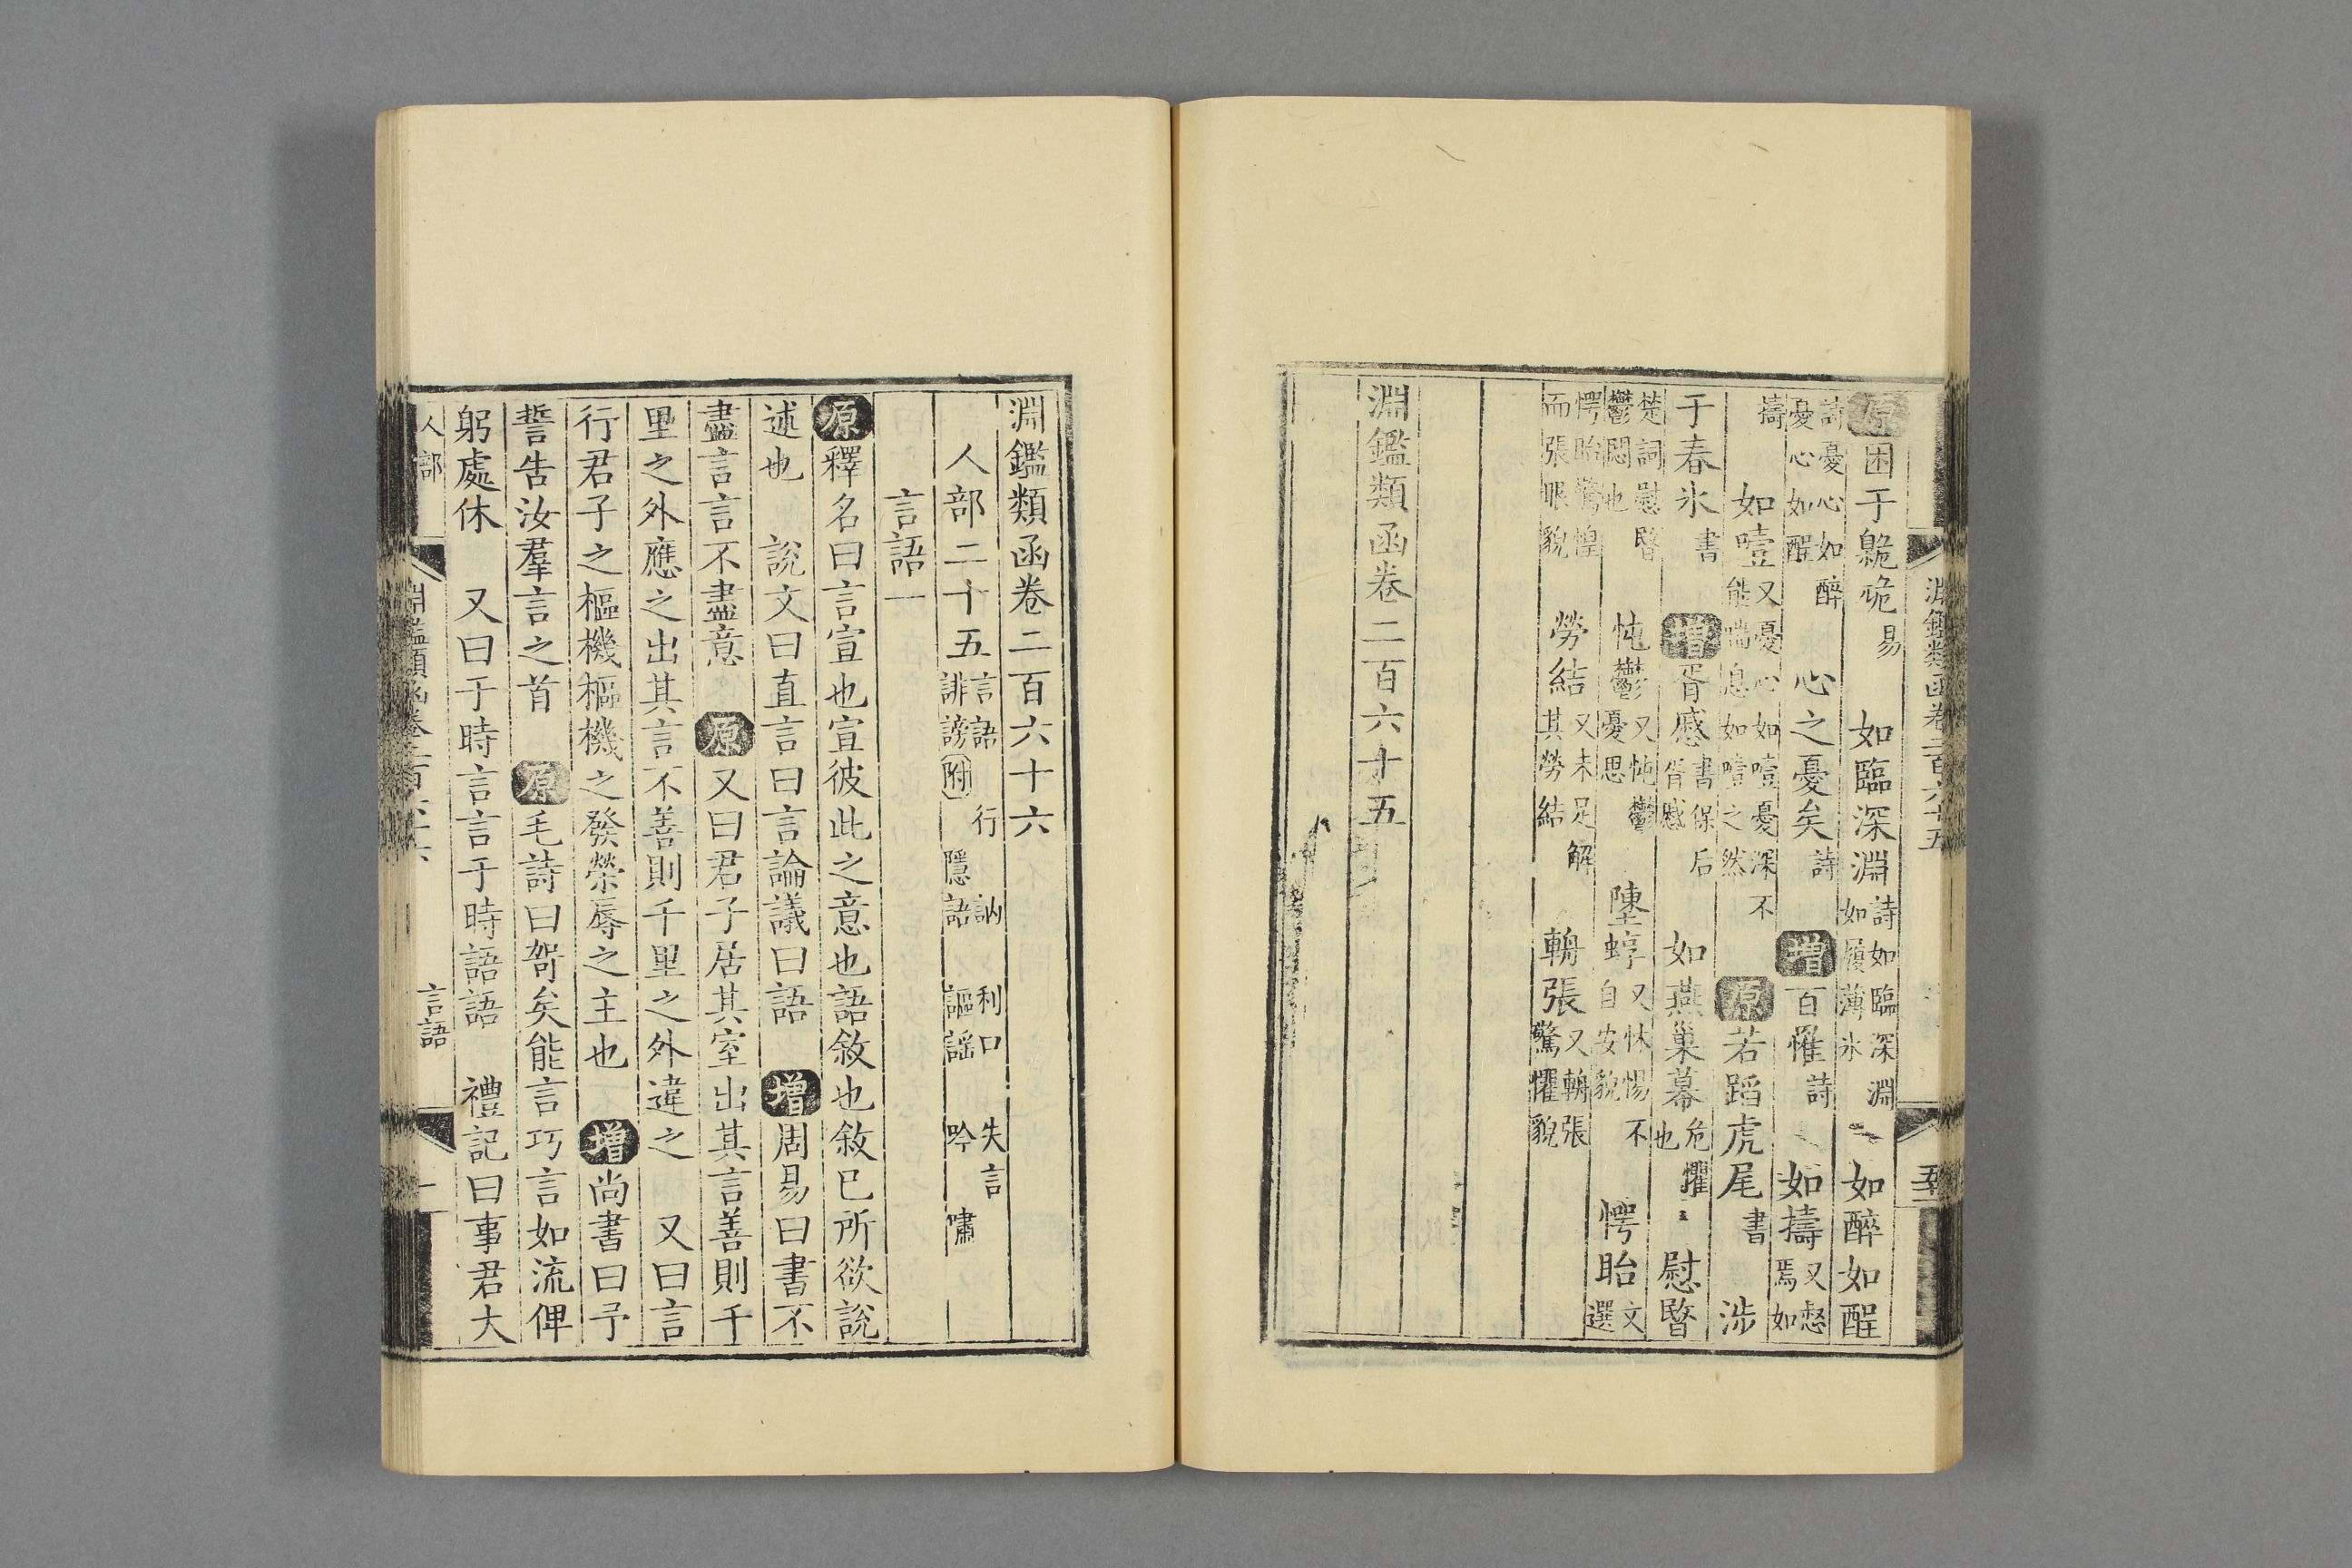 淵鑑類函卷二百六十五
五
原困于臲卼易　如臨深淵詩如臨深淵如履薄氷　如醉如酲
詩憂心如醉憂心如酲　心之憂矣詩　增百罹詩　如擣又惄焉如
擣　如噎又憂心如噎憂深不能喘息如噎之然　原若蹈虎尾書　涉
于春氷書　增胥慼書保后胥慼　如燕巢幕危懼也　慰暋
楚詞慰暋鬱悶也　忳鬱又忳鬱憂思　隀蜳又怵惕不自安貌　愕眙文選
愕眙驚惶而張眼貌　勞結又未足解其勞結　輈張又輈張驚懼貌
淵鑑類函卷二百六十五
淵鑑類函卷二百六十六
人部二十五言語　行　訥　利口　失言　誹謗附　隱語　謳謡　吟　嘯
言語一
原釋名曰言宣也宣彼此之意也語敘也敘已所欲說
述也　說文曰直言曰言論議曰語　增周易曰書不
盡言言不盡意　原又曰君子居其室出其言善則千
里之外應之出其言不善則千里之外違之　又曰言
行君子之樞機樞機之發榮辱之主也　增尚書曰予
誓告汝羣言之首　原毛詩曰哿矣能言巧言如流俾
躬處休　又曰于時言言于時語語　禮記曰事君大
人部　淵鑑類函卷二百六十六　言語　一